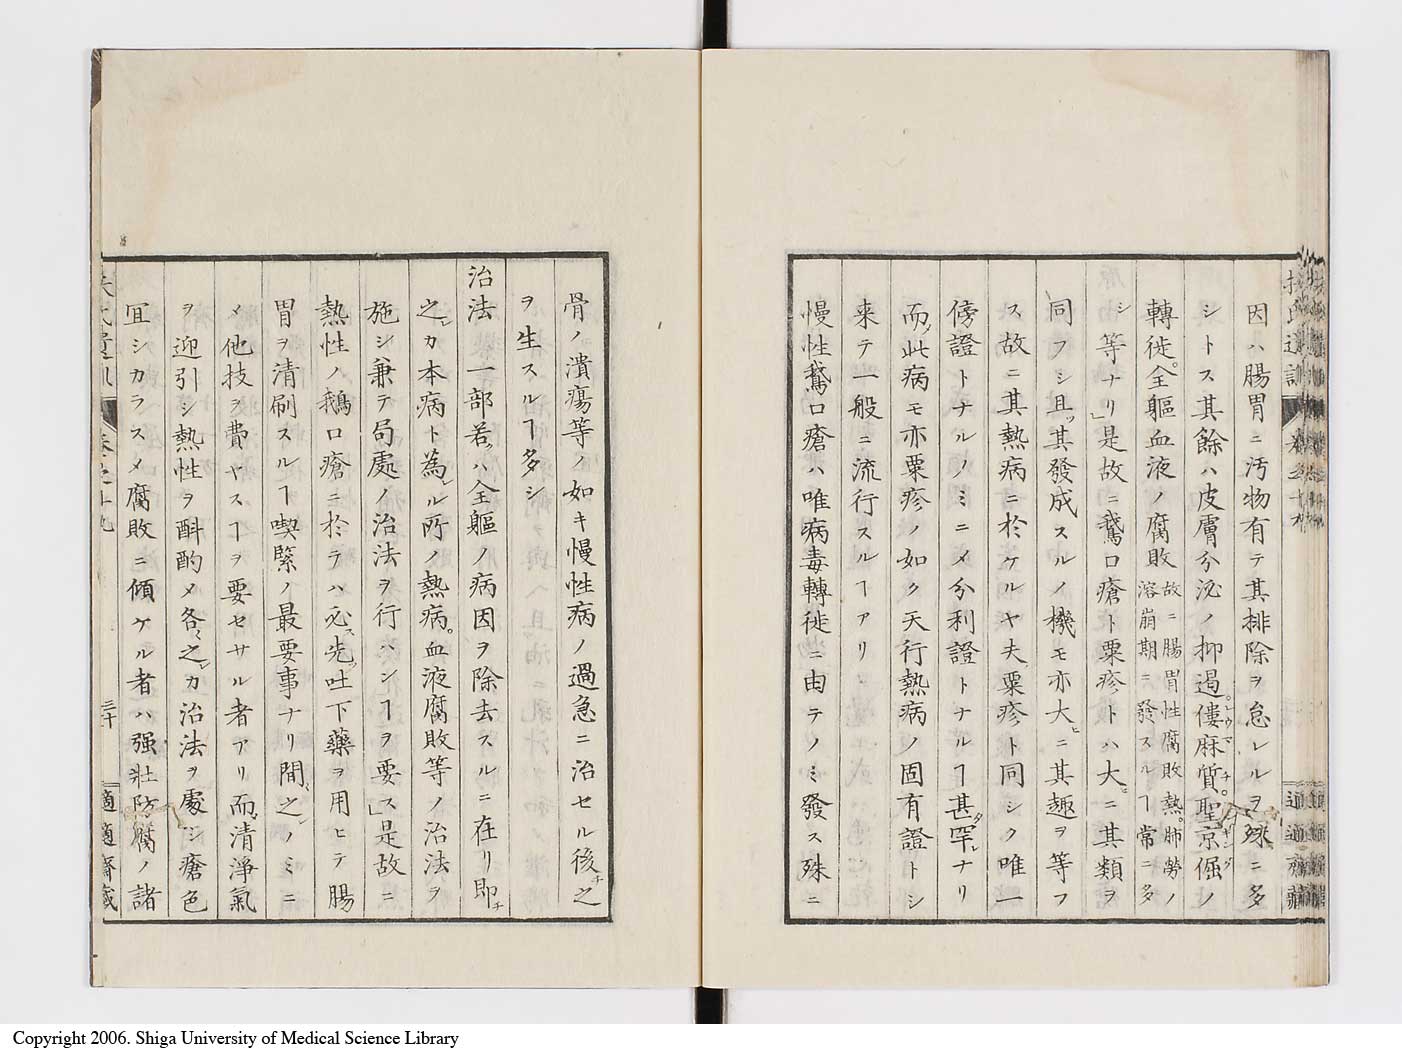 因ハ腸胃ニ汚物有テ其排除ヲ怠レルヲ殊ニ多
シトス其餘ハ皮膚分泌ノ抑遏。僂麻質。聖京倔ノ
轉徙。全軀血液ノ腐敗故ニ腸胃性腐敗熱。肺勞ノ溶崩期ニ發スルヿ常ニ多
シ等ナリ」是故ニ鵞口瘡ト粟疹トハ大ニ其類ヲ
同フシ且ツ其發成スルノ機モ亦大ニ其趣ヲ等フ
ス故ニ其熱病ニ於ケルヤ夫粟疹ト同シク唯一
傍證トナルノミニメ分利證トナルヿ甚タ罕レナリ
而ノ此病モ亦粟疹ノ如ク天行熱病ノ固有證トシ
来テ一般ニ流行スルヿアリ
慢性鵞口瘡ハ唯病毒轉徙ニ由テノミ發ス殊ニ
扶氏遺訓 卷之十九
適適齋藏
骨ノ潰瘍等ノ如キ慢性病ノ過急ニ治セル後チ之
ヲ生スルヿ多シ
治法 一部若クハ全軀ノ病因ヲ除去スルニ在リ即チ
之レカ本病ト為レル所ノ熱病。血液腐敗等ノ治法ヲ
施シ兼テ局處ノ治法ヲ行ハンヿヲ要ス」是故ニ
熱性ノ鵞口瘡ニ於テハ必ス先ツ吐下藥ヲ用ヒテ腸
胃ヲ清刷スルヿ喫緊ノ最要事ナリ間之レノミニ
メ他技ヲ費ヤスヿヲ要セサル者アリ而ノ清淨氣
ヲ迎引シ熱性ヲ斟酌メ各々之レカ治法ヲ處シ瘡色
冝シカラスメ腐敗ニ傾ケル者ハ强壯防腐ノ諸
扶氏遺訓 卷之十九 三十 適適齋藏
Copyright 2006. Shiga University of Medical Science Library